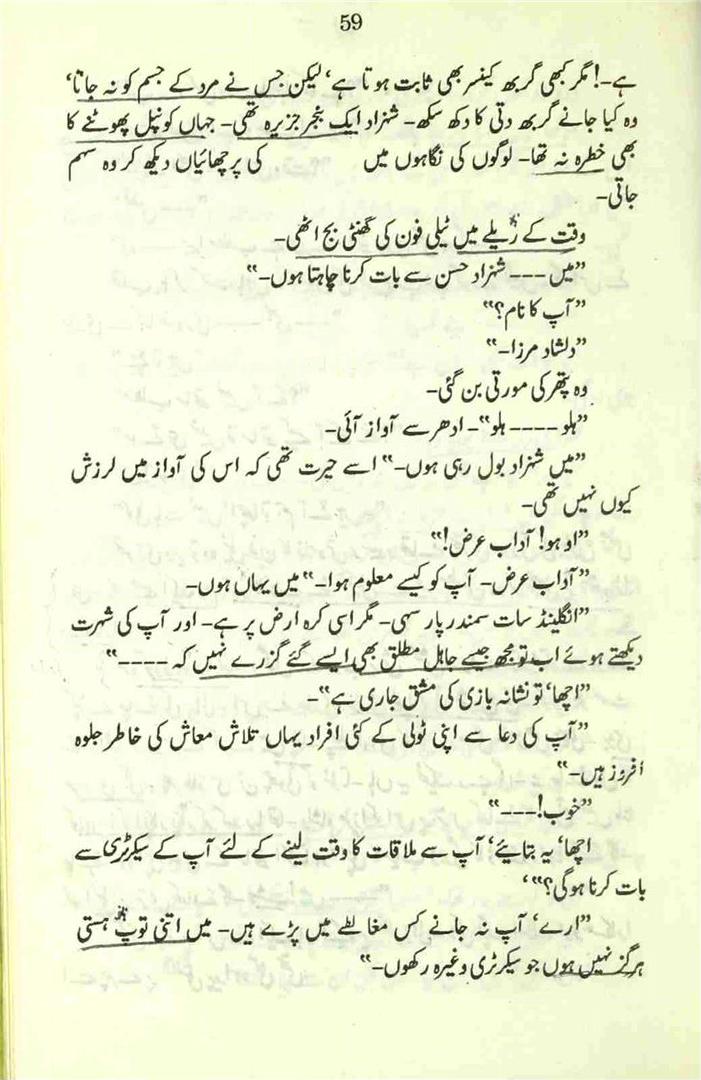 59
ہے-! مگر کبھی گربھ کینسر بھی ثابت ہوتا ہے، لیکن جس نے مرد کے جسم کو نہ جانا،
وہ کیا جانے گربھ دتی کا دکھ سکھ- شہزاد ایک بنجر جزیرہ تھی- جہاں کونپل پھوٹنے کا
بھی خطرہ نہ تھا- لوگوں کی نگاہوں میں کی پرچھائیاں دیکھ کر وہ سہم
جاتی-
وقت کے ریلے میں ٹیلی فون کی گھنٹی بج اٹھی-
”میں --- شہزاد حسن سے بات کرنا چاہتا ہوں-“
”آپ کا نام؟“
”دلشاد مرزا-“
وہ پتھر کی مورتی بن گئی-
”ہلو ---- ہلو“- ادھر سے آواز آئی-
”میں شہزاد بول رہی ہوں-“ اسے حیرت تھی کہ اس کی آواز میں لرزش
کیوں نہیں تھی-
”اوہو! آداب عرض!“
”آداب عرض- آپ کو کیسے معلوم ہوا-“ میں یہاں ہوں-
”انگلینڈ سات سمندر پار سہی- مگر اسی کرہ ارض پر ہے- اور آپ کی شہرت
دیکھتے ہوئے اب تو مجھ جیسے جاہل مطلق بھی ایسے گئے گزرے نہیں کہ ----“
”اچھا، تو نشانہ بازی کی مشق جاری ہے“-
”آپ کی دعا سے اپنی ٹولی کے کئی افراد یہاں تلاش معاش کی خاطر جلوہ
افروز ہیں-“
”خوب!---“
اچھا، یہ بتایئے، آپ سے ملاقات کا وقت لینے کے لئے آپ کے سیکرٹری سے
بات کرنا ہوگی؟“،
”ارے، آپ نہ جانے کس مغالطے میں پڑے ہیں- میں اتنی توپ ہستی
ہرگز نہیں ہوں جو سیکرٹری وغیرہ رکھوں-“